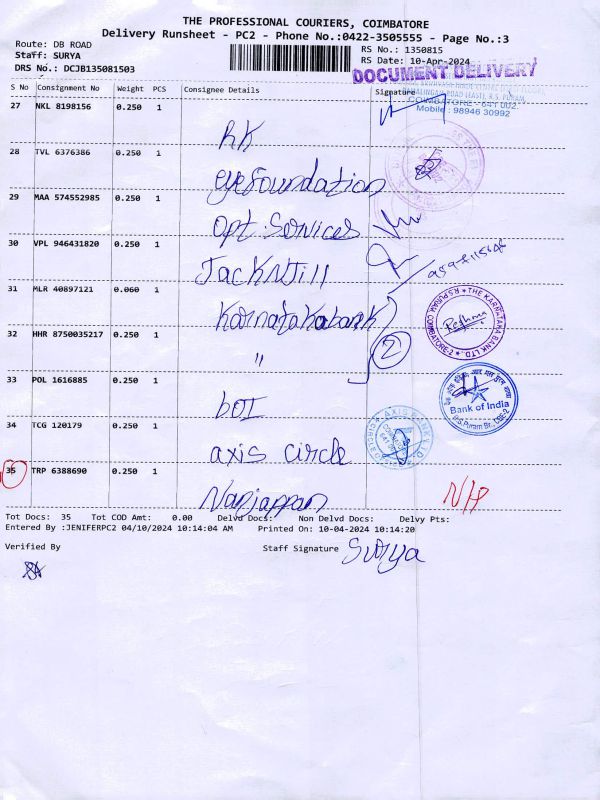 THE PROFESSIONAL COURIERS, COIMBATORE
Delivery Runsheet - PC2 - Phone No.:0422-3505555 - Page No.:3
Route: DB ROAD
RS No.: 1350815
Staff: SURYA
RS Date: 10-Apr-2024
DRS No.: DCJB135081503
DOCUMENT DELIVERY
S No Consignment No Weight PCS Consignee Details Signature
COIMBATORE - 641 002
Mobile : 98946 30992
27 NKL 8198156 0.250 1
RK
28 TVL 6376386 0.250 1
eye foundation
29 MAA 574552985 0.250 1
opt. Services
30 VPL 946431820 0.250 1
Jack N Jill
31 MLR 40897121 0.060 1
Karnataka bank
THE KARNATAKA BANK LTD. R.S. PURAM, COIMBATORE-2
32 HHR 8750035217 0.250 1
"
2
33 POL 1616885 0.250 1
BOI
Bank of India
R.S. Puram Br., CBE-2
34 TCG 120179 0.250 1
axis circle
AXIS BANK LTD
35 TRP 6388690 0.250 1
Nanjappan
N/P
Tot Docs: 35 Tot COD Amt: 0.00 Delvd Docs: Non Delvd Docs: Delvy Pts:
Entered By :JENIFERPC2 04/10/2024 10:14:04 AM Printed On: 10-04-2024 10:14:20
Verified By
Staff Signature Surya